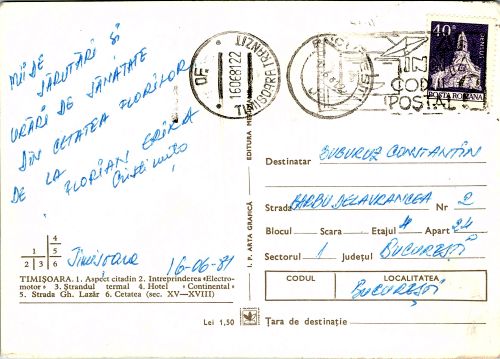 MII DE
SĂRUTĂRI ȘI
URĂRI DE SĂNĂTATE
DIN CETATEA FLORILOR
DE LA FLORIAN ERIKA
Timișoara 16-06-81
1 4 5 2 3 6
TIMIȘOARA. 1. Aspect citadin 2. Intreprinderea «Electro-
motor» 3. Ștrandul termal 4. Hotel «Continental»
5. Strada Gh. Lazăr 6. Cetatea (sec. XV—XVIII)
Lei 1,50
I. P. ARTA GRAFICĂ
EDITURA
TIMISOARA TRANZIT
16068122
BUCUREȘTI
IN
CODUL
POSTAL
40
POSTA ROMANA
Destinatar CUCURUZ CONSTANTIN
Strada BARBU DELAVRANCEA Nr 2
Blocul Scara Etajul 4 Apart 24
Sectorul 1 Județul BUCUREȘTI
CODUL LOCALITATEA
BUCUREȘTI
Țara de destinație